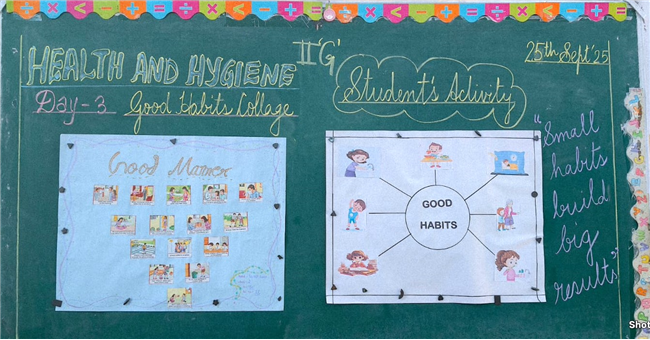 II 'G'
25th Sept'25
HEALTH AND HYGIENE
Student's Activity
Day-3 Good Habits Collage
Good Manner
GOOD
HABITS
"Small
habits
build
big
results"
Shot